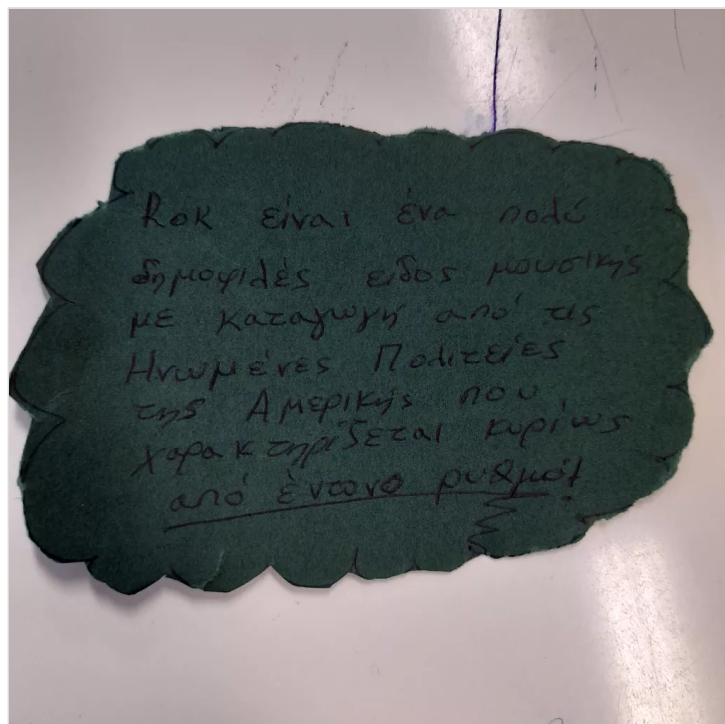 Rοκ είναι ένα πολύ
δημοφιλές ειδος μουσικής
με καταγωγή από τις
Ηνωμένες Πολιτείες
της Αμερικής που
χαρακτηρίζεται κυρίως
από έντονο ρυθμό!